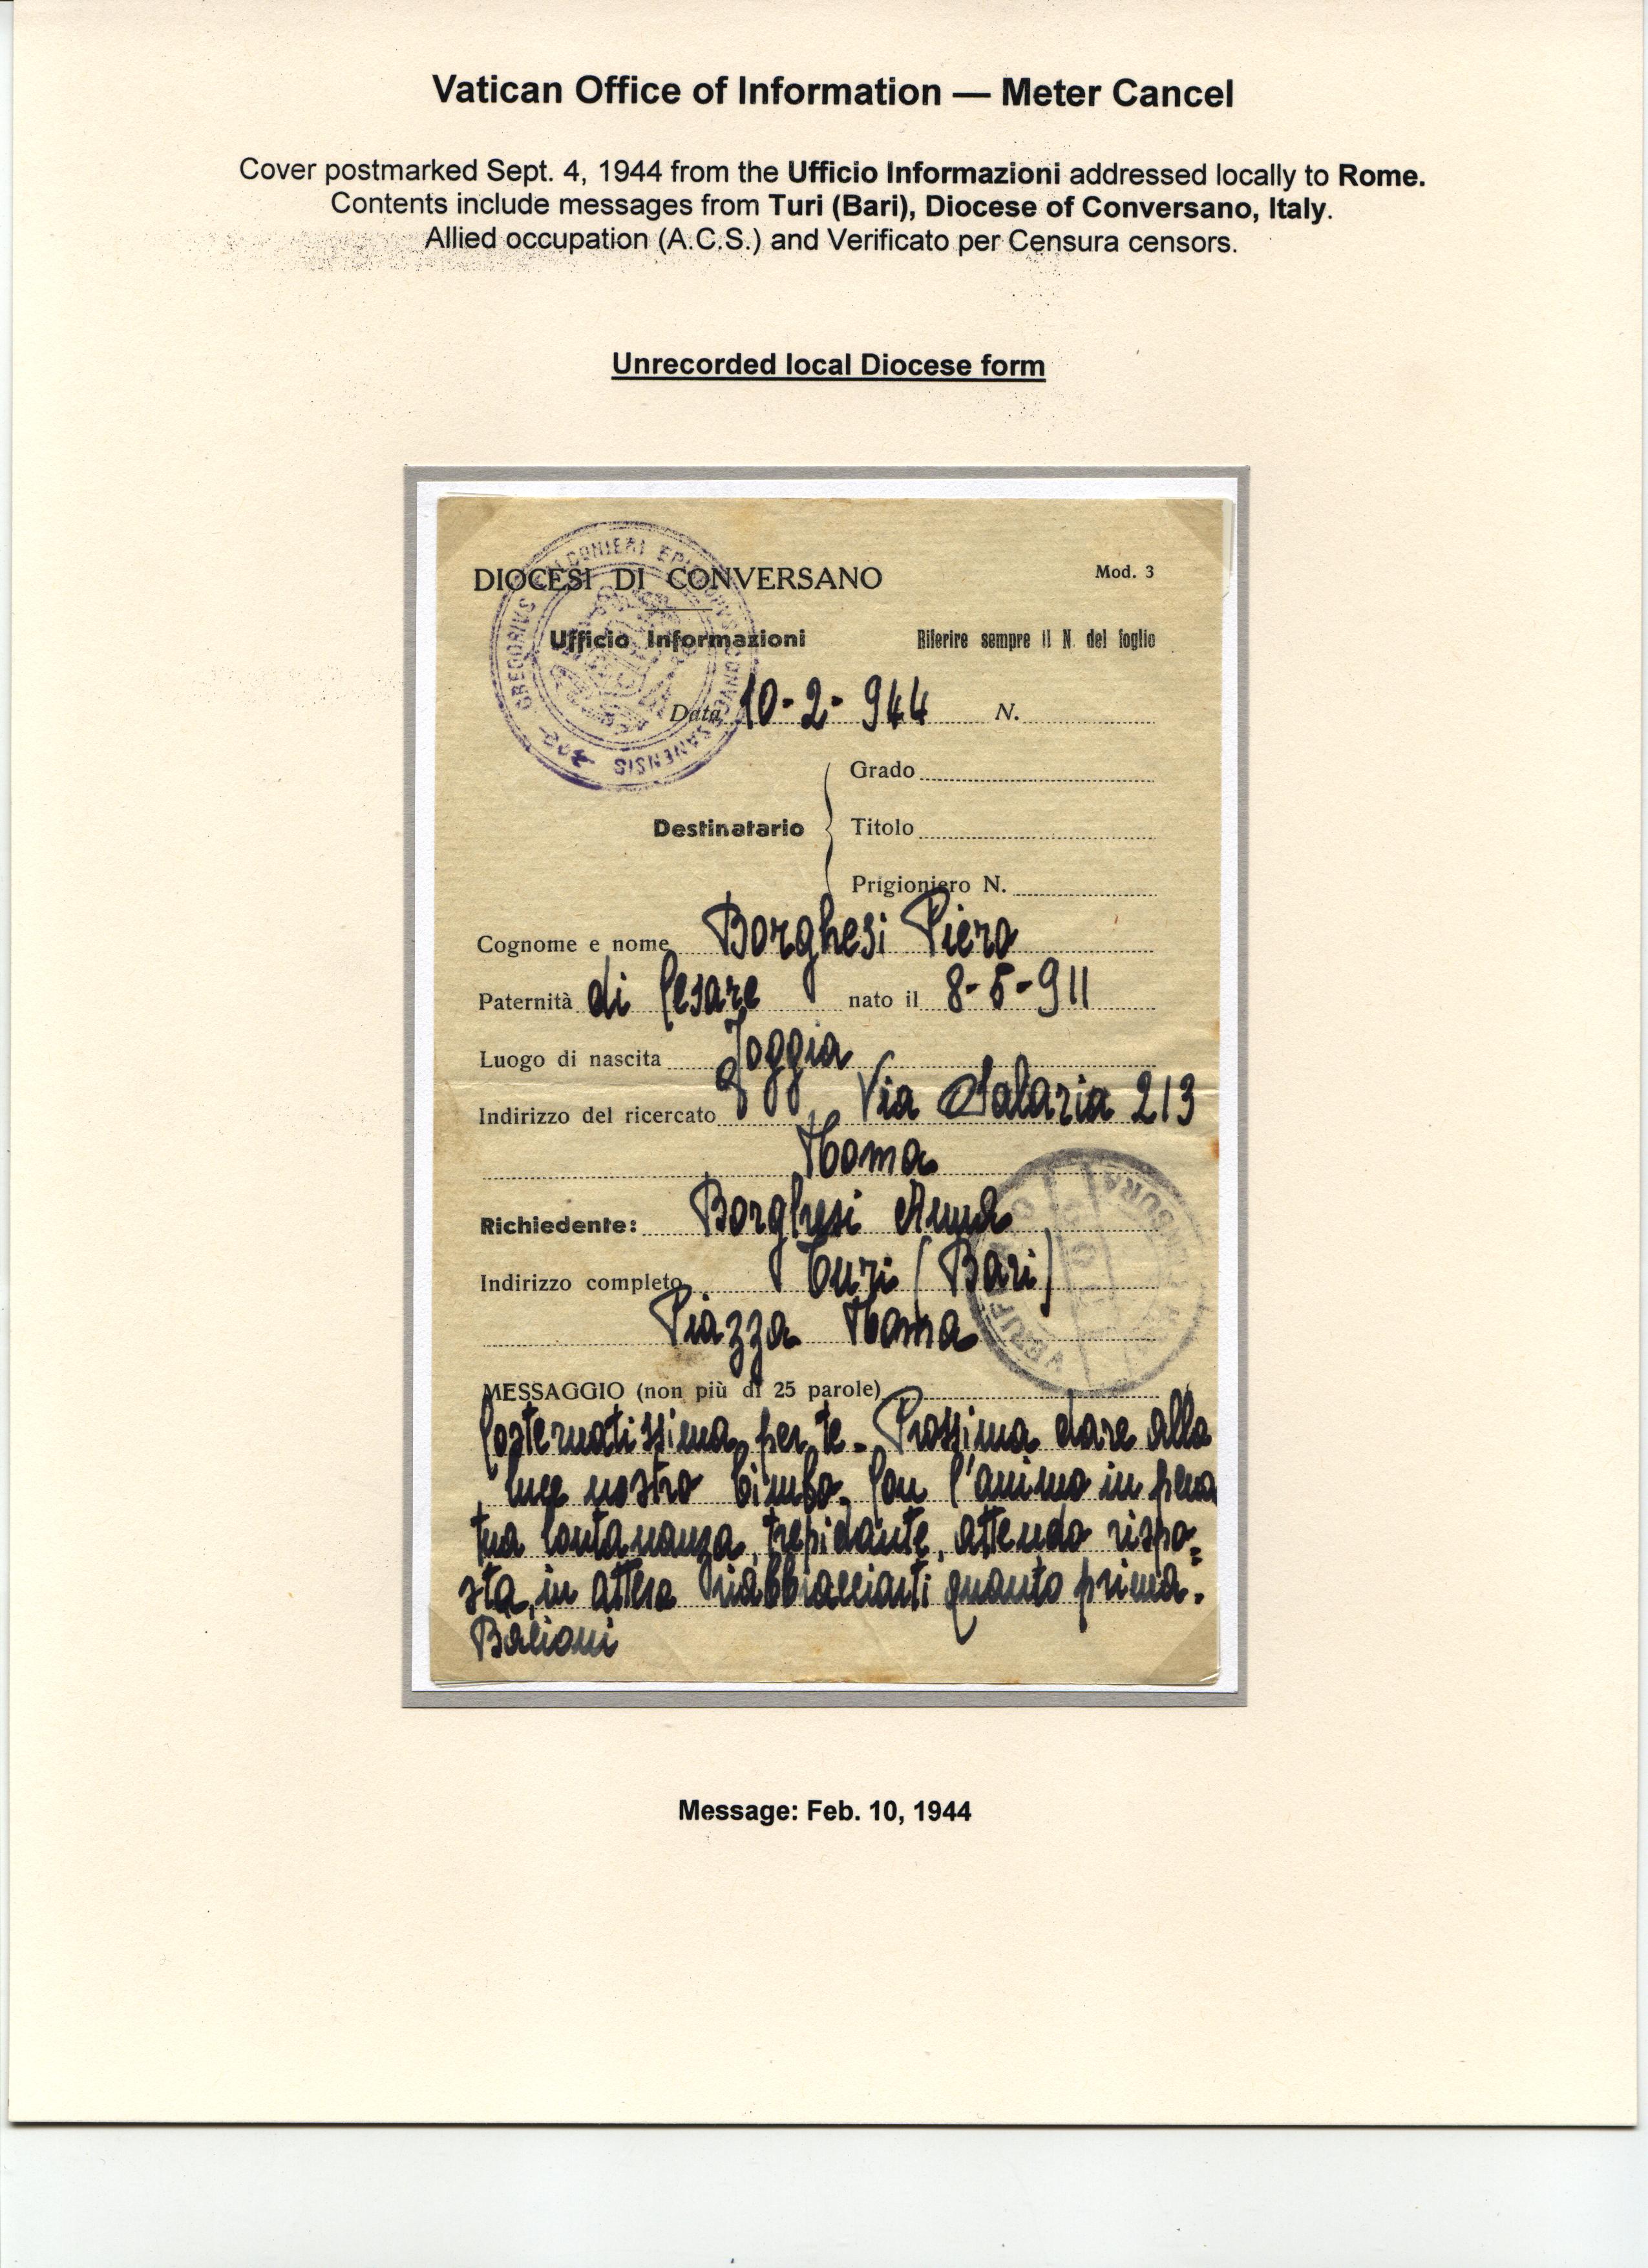 Vatican Office of Information — Meter Cancel
Cover postmarked Sept. 4, 1944 from the Ufficio Informazioni addressed locally to Rome.
Contents include messages from Turi (Bari), Diocese of Conversano, Italy.
Allied occupation (A.C.S.) and Verificato per Censura censors.
Unrecorded local Diocese form
DIOCESI DI CONVERSANO
Mod. 3
Ufficio Informazioni
Riferire sempre il N. del foglio
Data 10-2-944 N.
Grado
Destinatario
Titolo
Prigioniero N.
Cognome e nome Borghesi Piero
Paternità di Cesare nato il 8-5-911
Luogo di nascita Foggia
Indirizzo del ricercato Via Salaria 213
Roma
Richiedente: Borghesi Anna
Indirizzo completo Turi (Bari)
Piazza Roma
MESSAGGIO (non più di 25 parole)
Costernatissima per te. Prossima dare alla
luce nostro bimbo. Con l'animo in pena
tua lontananza, trepidante, attendo rispo=
sta, in attesa riabbracciarti quanto prima.
Bacioni
GREGORIUS FALCONIERI EPISCOPUS CONVERSANENSIS
VERIFICATO CENSURA
Message: Feb. 10, 1944